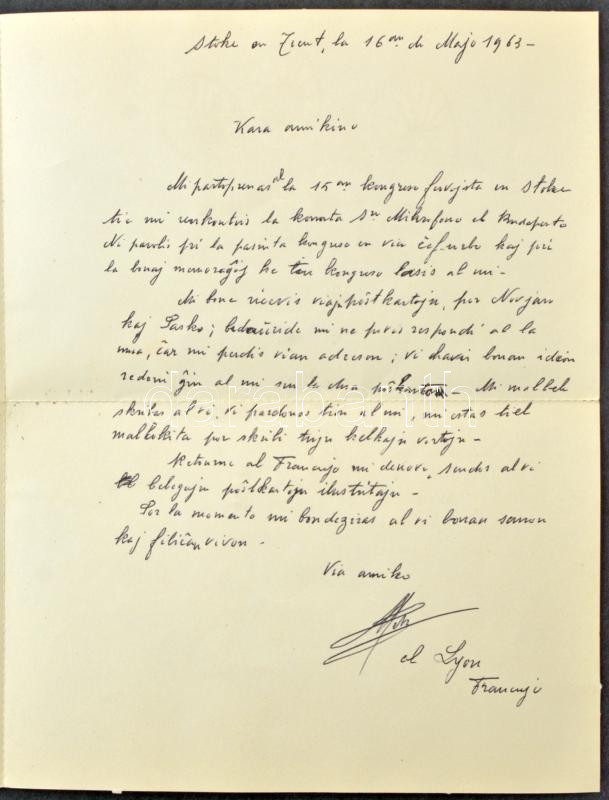 Stoke on Trent, la 16an de Majo 1963 -
Kara amikino
Mi partoprenas al la 15an kongreso fervojista en Stoke
tie mi renkontis la konata Sro el Budapesto
Ni parolis pri la pasinta kongreso en via ĉefurbo kaj pri
la bonaj memoraĵoj ke tiu kongreso lasis al mi -
Mi bone ricevis viajn poŝtkartojn, por Novjaro
kaj Pasko; bedaŭride mi ne povas respondi al la
unua, ĉar mi perdis vian adreson; vi havis bonan ideon
redoni ĝin al mi sur la dua poŝtkarto - Mi mallerte
skribas al vi, vi pardonos tion al mi, mi estas tiel
mallerta por skribi tiujn kelkajn vortojn -
Retourne al Francujo mi denove sendos al vi
belegajn poŝtkartojn ilustritajn -
Por la momento mi bondeziras al vi bonan sanon
kaj feliĉan vivon -
Via amiko
el Lyon
Francujo
darabanth